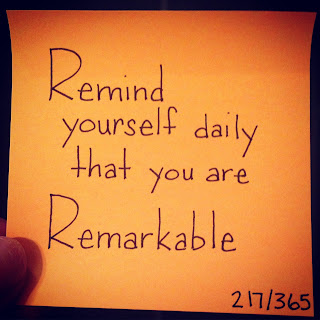 Remind
yourself daily
that you are
Remarkable
217/365